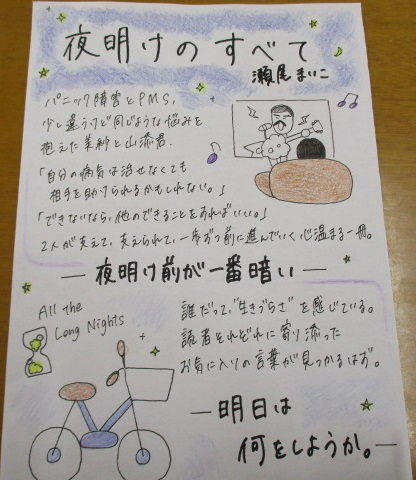 夜明けのすべて
瀬尾まいこ
パニック障害とPMS、
少し違うけど同じような悩みを
抱えた美紗と山添君。
「自分の病気は治せなくても
相手を助けられるかもしれない。」
「できないなら、他のできることをあればいい。」
2人が支えて、支えられて、一歩ずつ前に進んでいく心温まる一冊。
―夜明け前が一番暗い―
All the
Long Nights
誰だって、"生きづらさ"を感じている。
読者それぞれに寄り添った
お気に入りの言葉が見つかるはず。
―明日は
何をしようか。―